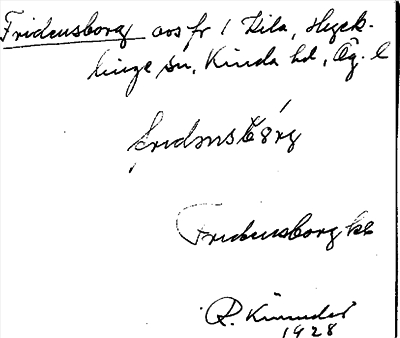 Fridensborg avs fr 1 Kila, Hyck-
linge sn, Kinda hd, Ög. l
fridensbórg
Fridensborg ke
R.
1928